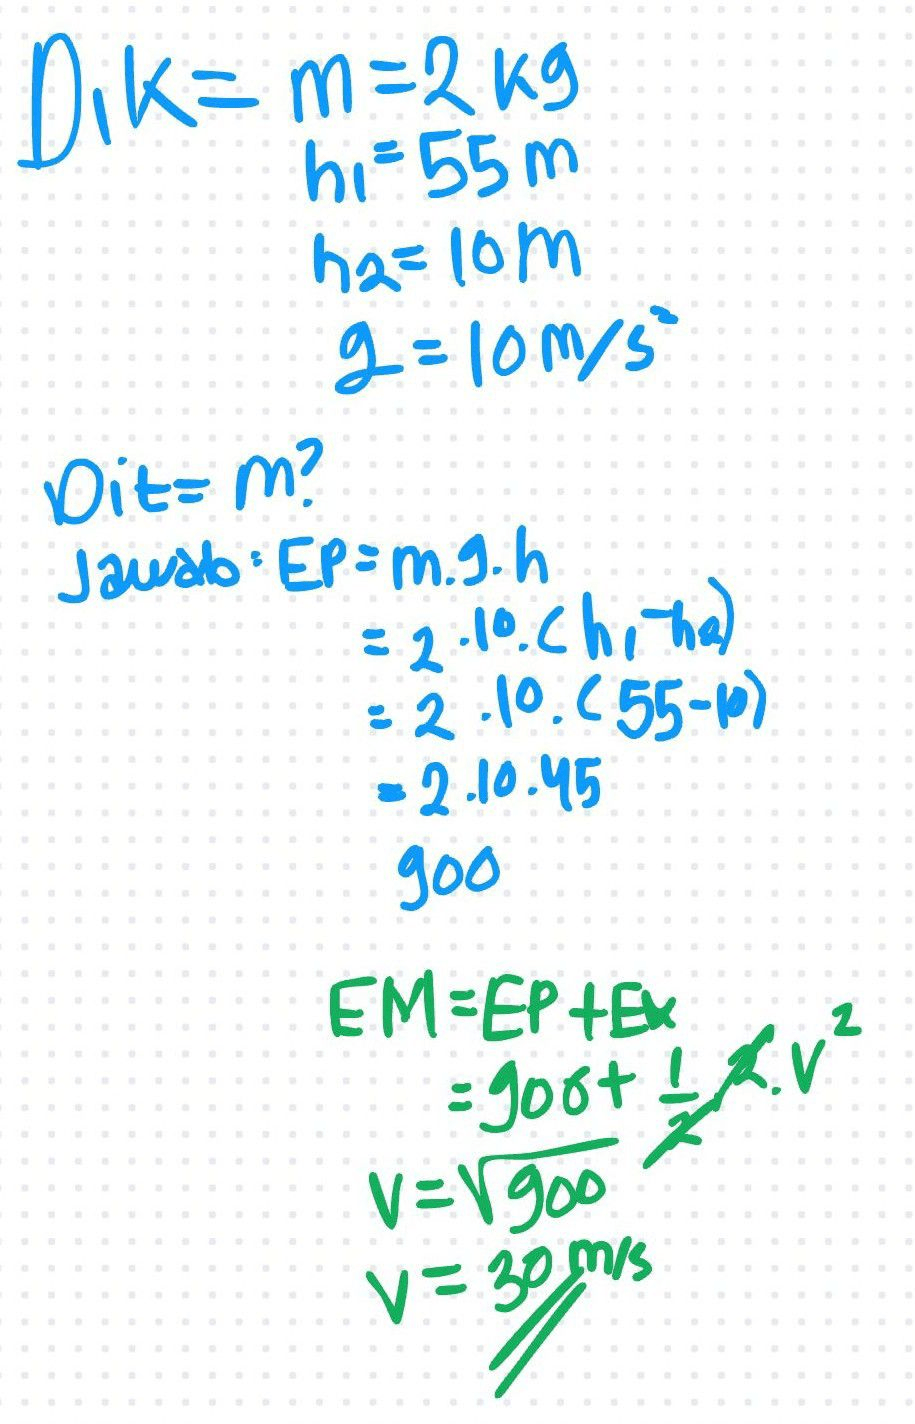 Dik= m=2 kg
h₁=55 m
h₂=10 m
g=10 m/s²
Dit= m?
Jawab: EP=m.g.h
=2.10.(h₁-h₂)
=2.10.(55-10)
=2.10.45
900
EM=EP+Ek
=900+½.2.v²
V=√900
V=30 m/s